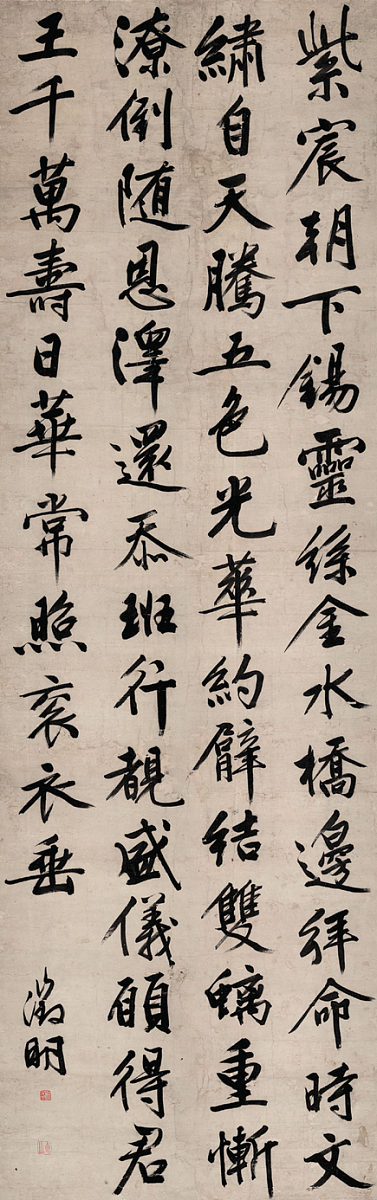 紫宸朝下錫靈絲金水橋邊拜命時文
繡自天騰五色光華約臂結雙螭重慚
潦倒隨恩澤還忝班行覩盛儀願得君
王千萬壽日華常照衮衣垂
徵明